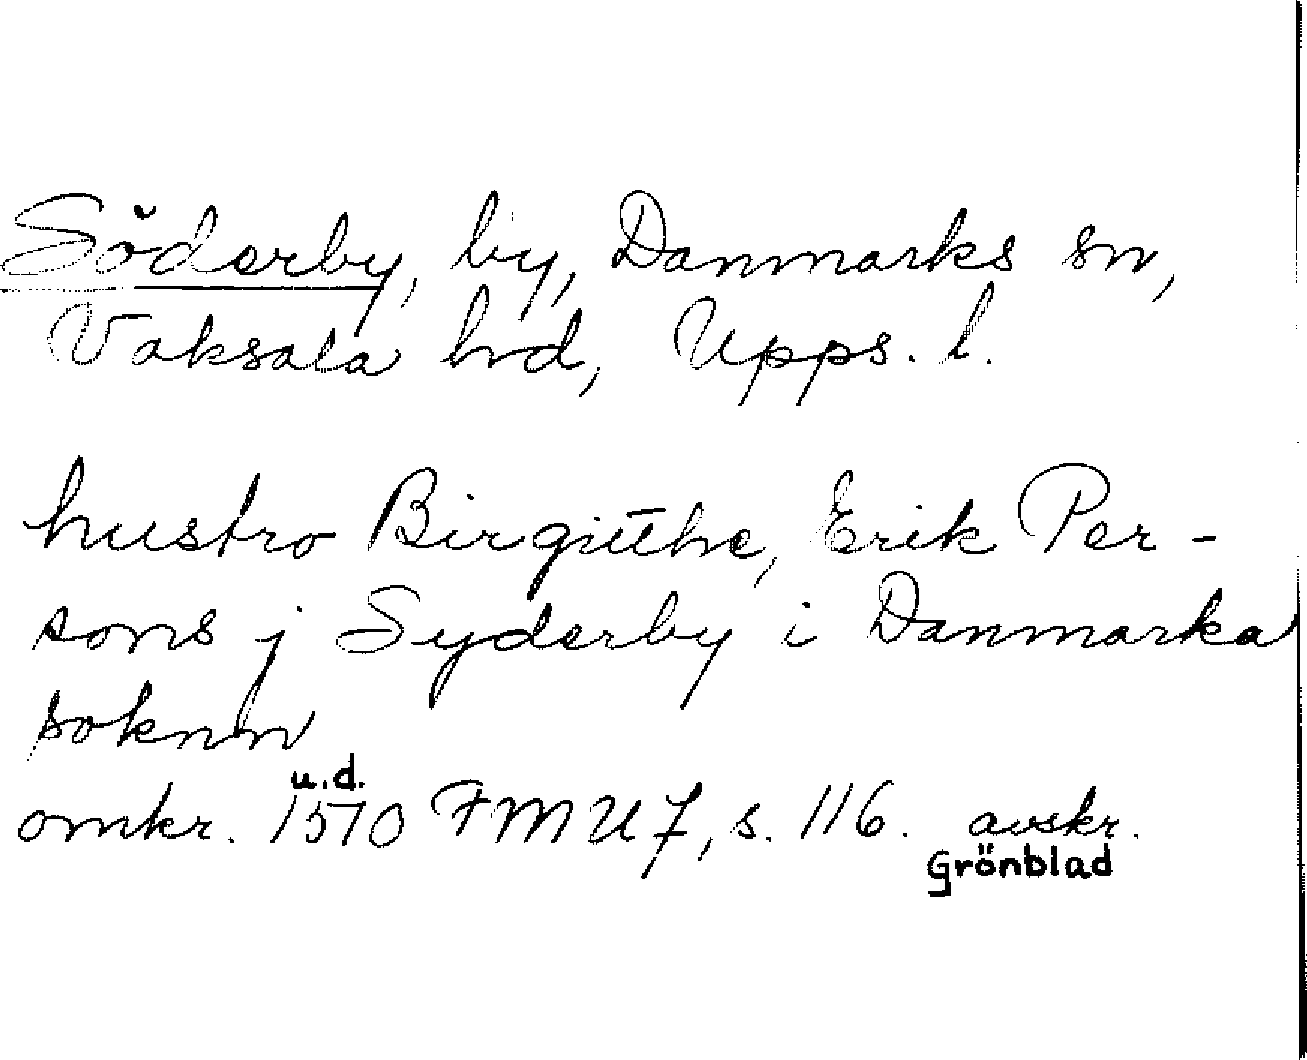 Söderby, by, Danmarks sn,
Vaksala hd, Upps. l.
hustro Birgitthe, Erik Per-
sons j Syderby i Danmarka
soknn
u.d.
omkr. 1570 FMU 7, s. 116. avskr.
Grönblad